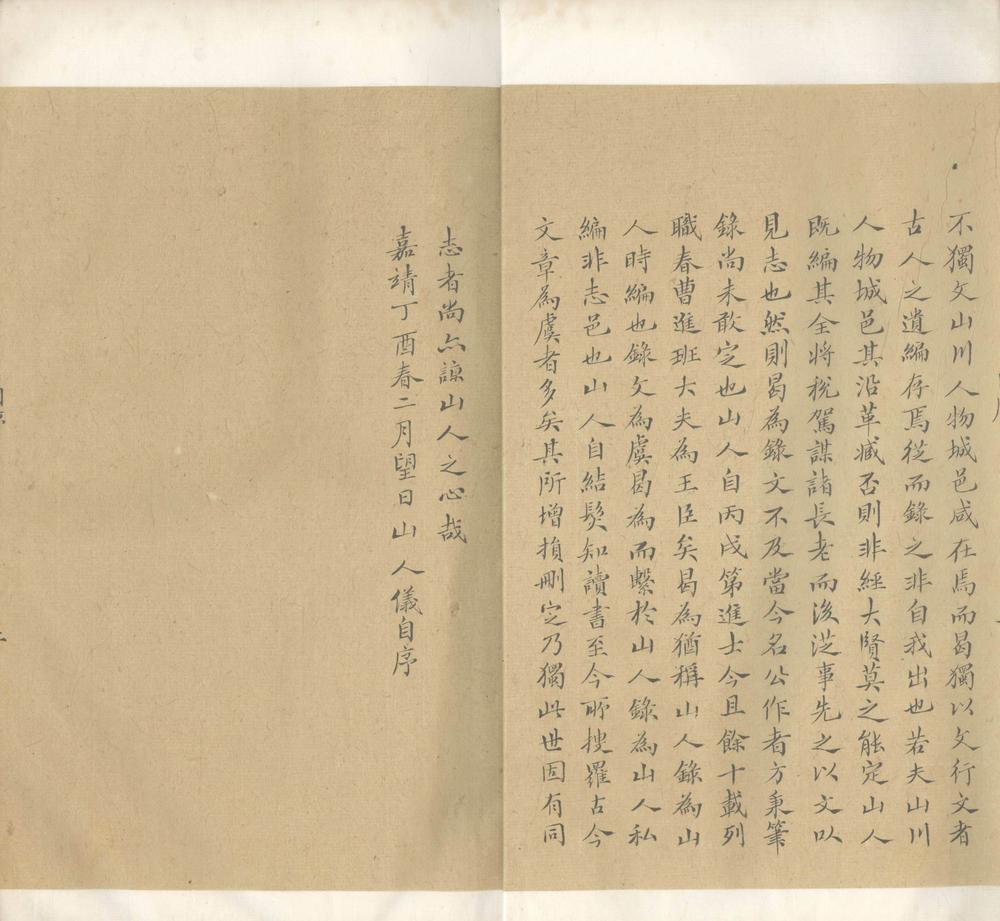 不獨文山川人物城邑咸在焉而曷獨以文行文者
古人之遺編存焉從而錄之非自我出也若夫山川
人物城邑其沿革臧否則非經大賢莫之能定山人
既編其全將稅駕謀諸長老而後涖事先之以文以
見志也然則曷為錄文不及當今名公作者方秉筆
錄尚未敢定也山人自丙戌第進士今且餘十載列
職春曹進班大夫為王臣矣曷為猶稱山人錄為山
人時編也錄文為虞曷為而繫於山人錄為山人私
編非志邑也山人自結髮知讀書至今所搜羅古今
文章為虞者多矣其所增損刪定乃獨此世固有同
志者尚亦諒山人之心哉
嘉靖丁酉春二月望日山人儀自序